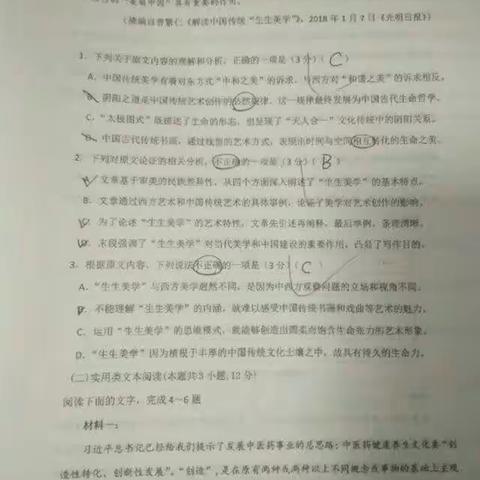 (摘编自曾繁仁《解读中国传统“生生美学”》,2018年1月7日《光明日报》)
1. 下列关于原文内容的理解和分析,正确的一项是(3分)(C)
A. 中国传统美学有着对东方式“中和之美”的诉求,与西方对“和谐之美”的诉求相反。
B. 阴阳之道是中国传统艺术创作的必然规律,这一规律最终发展为中国古代生命哲学。
C. “太极图式”既描述了生命的形态,也呈现了“天人合一”文化传统中的阴阳关系。
D. 中国古代传统书画,通过线型的艺术方式,表现出时间与空间相互转化的生命之美。
2. 下列对原文论证的相关分析,不正确的一项是(3分)(B)
A. 文章基于审美的民族差异性,从四个方面深入阐述了“生生美学”的基本特点。
B. 文章通过西方艺术和中国传统艺术的具体事例,论证了美学对艺术创作的影响。
C. 为了论述“生生美学”的艺术特性,文章先引述再阐释,最后举例,条理清晰。
D. 末段强调了“生生美学”对当代美学和中国建设的重要作用,凸显了写作目的。
3. 根据原文内容,下列说法不正确的一项是(3分)(C)
A. “生生美学”与西方美学迥然不同,是因为中西方观照问题的立场和视角不同。
B. 不能理解“生生美学”的内涵,就难以感受中国传统书画和戏曲等艺术的魅力。
C. 运用“生生美学”的思维模式,就能够创造出圆柔而饱含生命张力的艺术形象。
D. “生生美学”因为植根于丰厚的中国传统文化土壤之中,故具有持久的生命力。
(二)实用类文本阅读(本题共3小题,12分)
阅读下面的文字,完成4~6题
材料一:
习近平总书记已经给我们提示了发展中医药事业的总思路:中医药健康养生文化要“创
造性转化、创新性发展”。“创造”,是在原有两种或两种以上不同概念或事物的基础上呈现